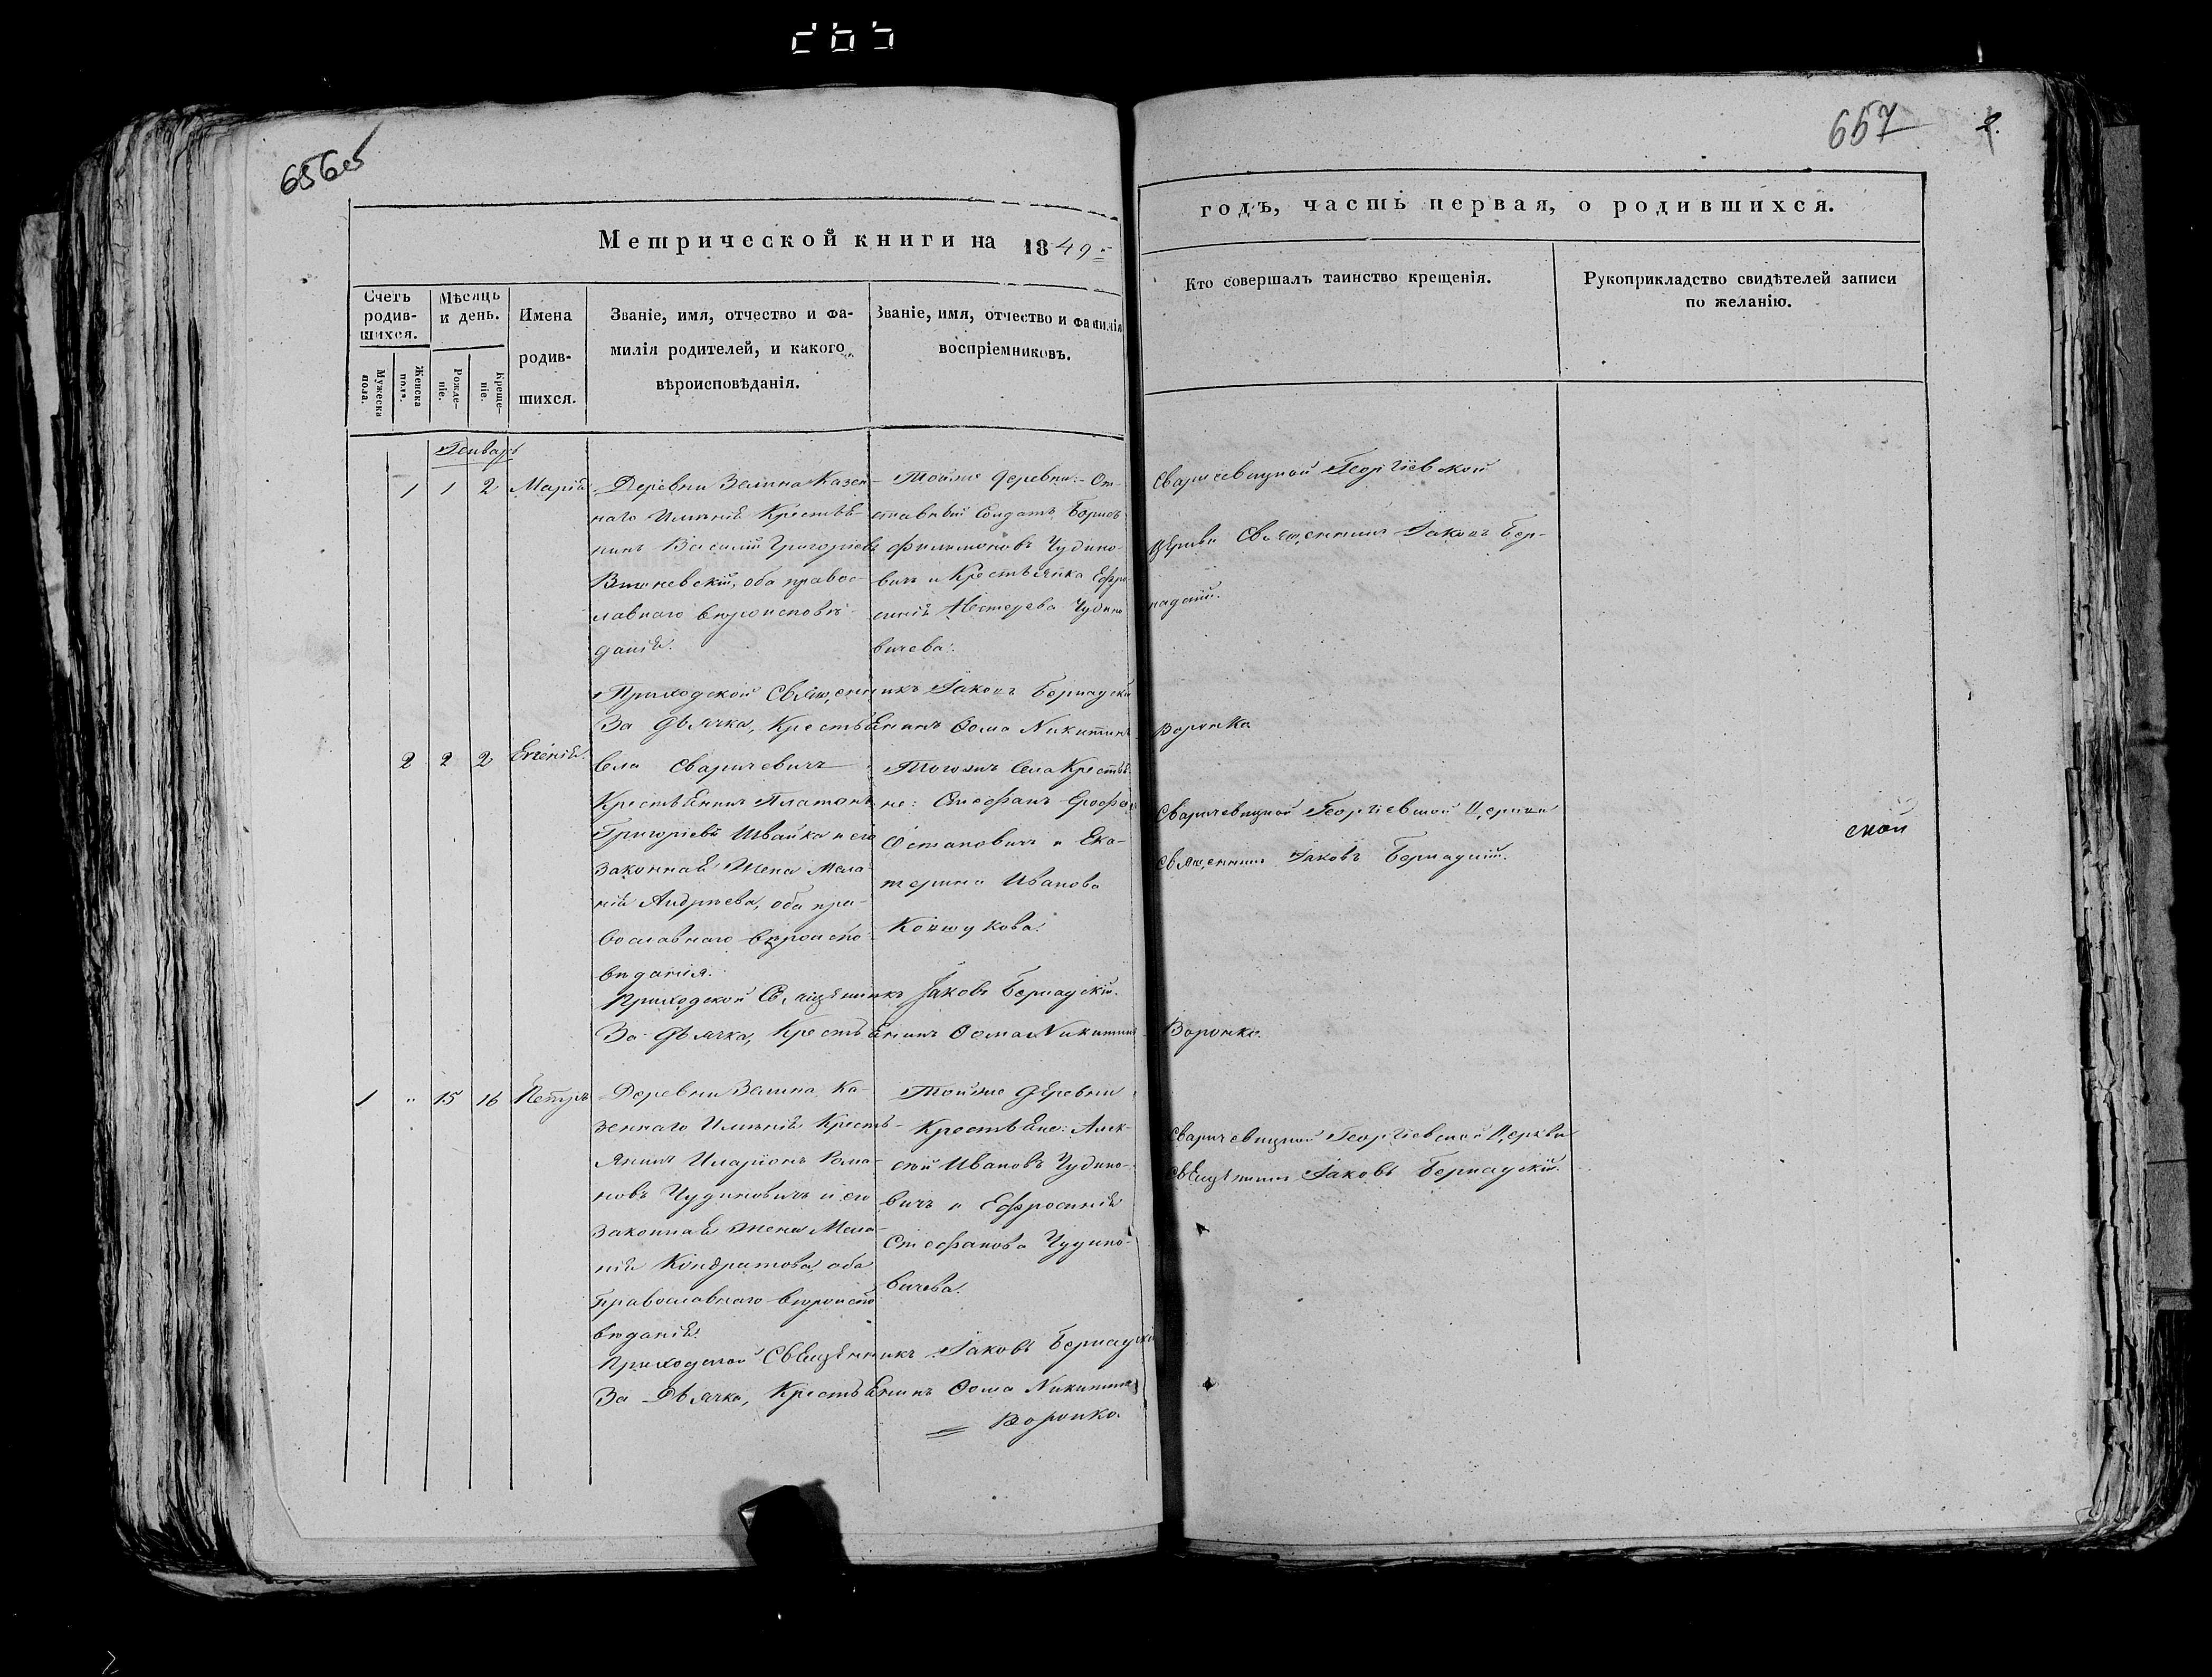 656об
657
2.
Метрической книги на 1849=
годъ, часть первая, о родившихся.
Счетъ родив-
шихся.
Мужеска пола.
Женска пола.
Мѣсяцъ и день.
Рожде-
ніе.
Креще-
ніе.
Имена
родив-
шихся.
Званіе, имя, отчество и фа-
милія родителей, и какого
вѣроисповѣданія.
Званіе, имя, отчество и фамилія
воспріемниковъ.
Кто совершалъ таинство крещенія.
Рукоприкладство свидѣтелей записи
по желанію.
Генварь
1 1 2 Марія
Деревни Казен-
наго Имѣнія Крестья-
нинъ Василій Григоріевъ
оба правос-
лавнаго вѣроисповѣ-
данія.
Тойже деревни: От-
ставный Солдатъ Борисъ
Филимоновъ Чудино-
вичъ и Крестьянка Ефро-
синія Нестерова Чудино-
вичева.
Сваричевицкой Георгіевской
Церкви Священникъ Іаковъ Бер-
надскій.
Приходской Священникъ Іаковъ Бернадскій
За Дьячка, Крестьянинъ Ѳома Никитинъ Воронко
2 2 2 Евгенія.
Села Сваричевичъ
Крестьянинъ Платонъ
Григоріевъ Швайка и его
законная Жена Мела-
нія Андреева, оба пра-
вославнаго вѣроиспо-
вѣданія.
Тогожъ Села Крестья-
не: Стефанъ
Остаповичъ и Ека-
терина Иванова
Сваричевицкой Георгіевской Церкви
Священникъ Іаковъ Бернадскій.
ской
Приходской Священникъ Іаковъ Бернадскій.
За Дьячка, Крестьянинъ Ѳома Никитинъ Воронко.
1 " 15 16 Петръ
Деревни Ка-
зеннаго Имѣнія Кресть-
янинъ Иларіонъ Рома-
новъ Чудиновичъ и его
законная жена Мела-
нія Кондратова, оба
православнаго вѣроиспо-
вѣданія.
Тойже деревни
Крестьяне: Алек-
сѣй Ивановъ Чудино-
вичъ и Ефросинія
Стефанова Чудино-
вичева.
Сваричевицкой Георгіевской Церкви
Священникъ Іаковъ Бернадскій.
Приходской Священникъ Іаковъ Бернадскій
За Дьячка, Крестьянинъ Ѳома Никитинъ
= Воронко.